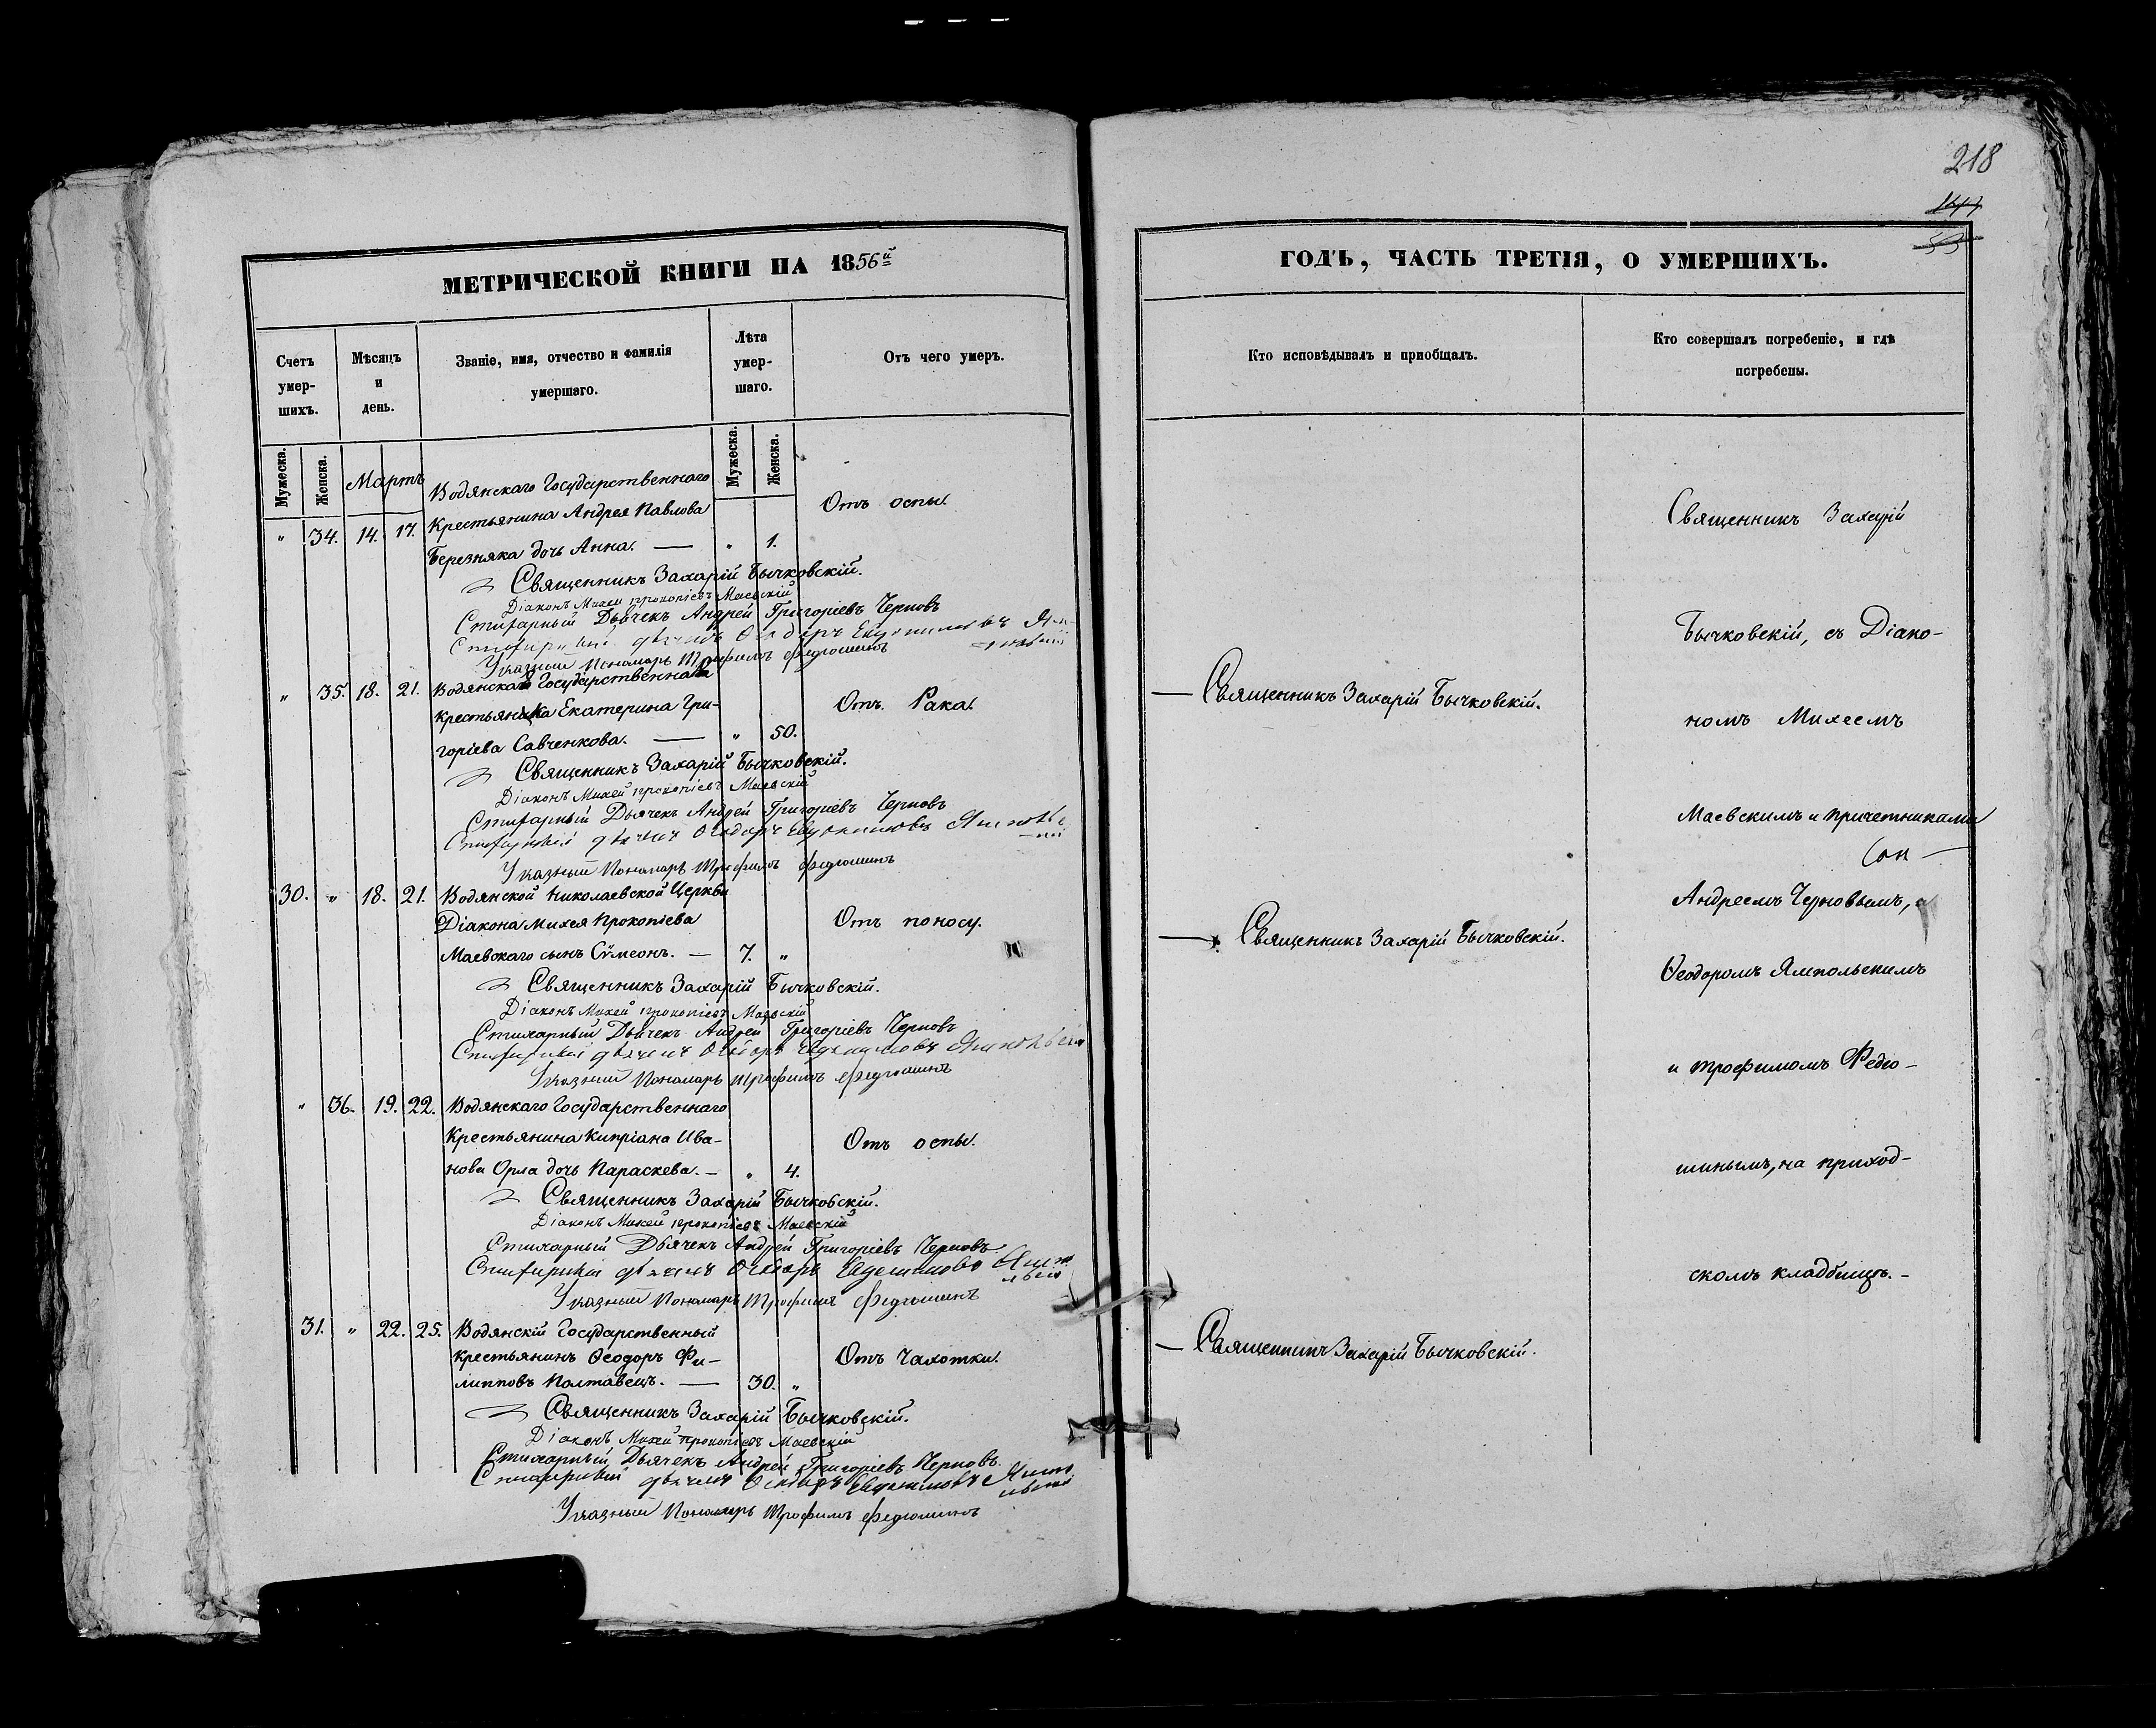 МЕТРИЧЕСКОЙ КНИГИ НА 1856й
Счетъ умер-шихъ.
Мѣсяцъ и день.
Званіе, имя, отчество и фамилія умершаго.
Лѣта умер-шаго.
Отъ чего умеръ.
Мужеска.
Женска.
Мужеска.
Женска.
Мартъ
Водянскаго Государственнаго
Крестьянина Андрея Павлова
Отъ оспы.
" 34. 14. 17.
Березняка дочь Анна. — " 1.
Священникъ Захарій Бычковскій.
Діаконъ Михей Прокопіевъ Маевскій
Стихарный Дьячекъ Андрей Григоріевъ Черновъ
Указный Пономарь Трофимъ Федюшинъ
" 35. 18. 21. Водянская Государственная
крестьянка Екатерина Гри-
Отъ Рака.
горіева Савченкова. — " 50.
Священникъ Захарій Бычковскій.
Діаконъ Михей Прокопіевъ Маевскій
Стихарный Дьячекъ Андрей Григоріевъ Черновъ
Указный Пономарь Трофимъ Федюшинъ
30. " 18. 21. Водянской Николаевской Церкви
Діакона Михея Прокопіева
Отъ поносу.
Маевскаго сынъ Сѵмеонъ. — 7. "
Священникъ Захарій Бычковскій.
Діаконъ Михей Прокопіевъ Маевскій
Стихарный Дьячекъ Андрей Григоріевъ Черновъ
Указный Пономарь Трофимъ Федюшинъ
" 36. 19. 22. Водянскаго Государственнаго
Крестьянина Кипріана Ива-
Отъ оспы.
нова Орла дочь Параскева. — " 4.
Священникъ Захарій Бычковскій.
Діаконъ Михей Прокопіевъ Маевскій
Стихарный Дьячекъ Андрей Григоріевъ Черновъ
Указный Пономарь Трофимъ Федюшинъ
31. " 22. 25. Водянскій Государственный
крестьянинъ Ѳеодоръ Фи-
Отъ Чахотки.
липповъ Полтавецъ. — 30. "
Священникъ Захарій Бычковскій.
Діаконъ Михей Прокопіевъ Маевскій
Стихарный Дьячекъ Андрей Григоріевъ Черновъ
Указный Пономарь Трофимъ Федюшинъ
218
ГОДЪ, ЧАСТЬ ТРЕТІЯ, О УМЕРШИХЪ.
Кто исповѣдывалъ и пріобщалъ.
Кто совершалъ погребеніе, и гдѣ
погребены.
— Священникъ Захарій Бычковскій.
— Священникъ Захарій Бычковскій.
— Священникъ Захарій Бычковскій.
Священникъ Захарій
Бычковскій, съ Діако-
номъ Михеемъ
Маевскимъ и причетниками
Андреемъ Черновымъ,
Ѳеодоромъ Ямпольскимъ
и Трофимомъ Федю-
шинымъ, на приход-
скомъ кладбищѣ. -